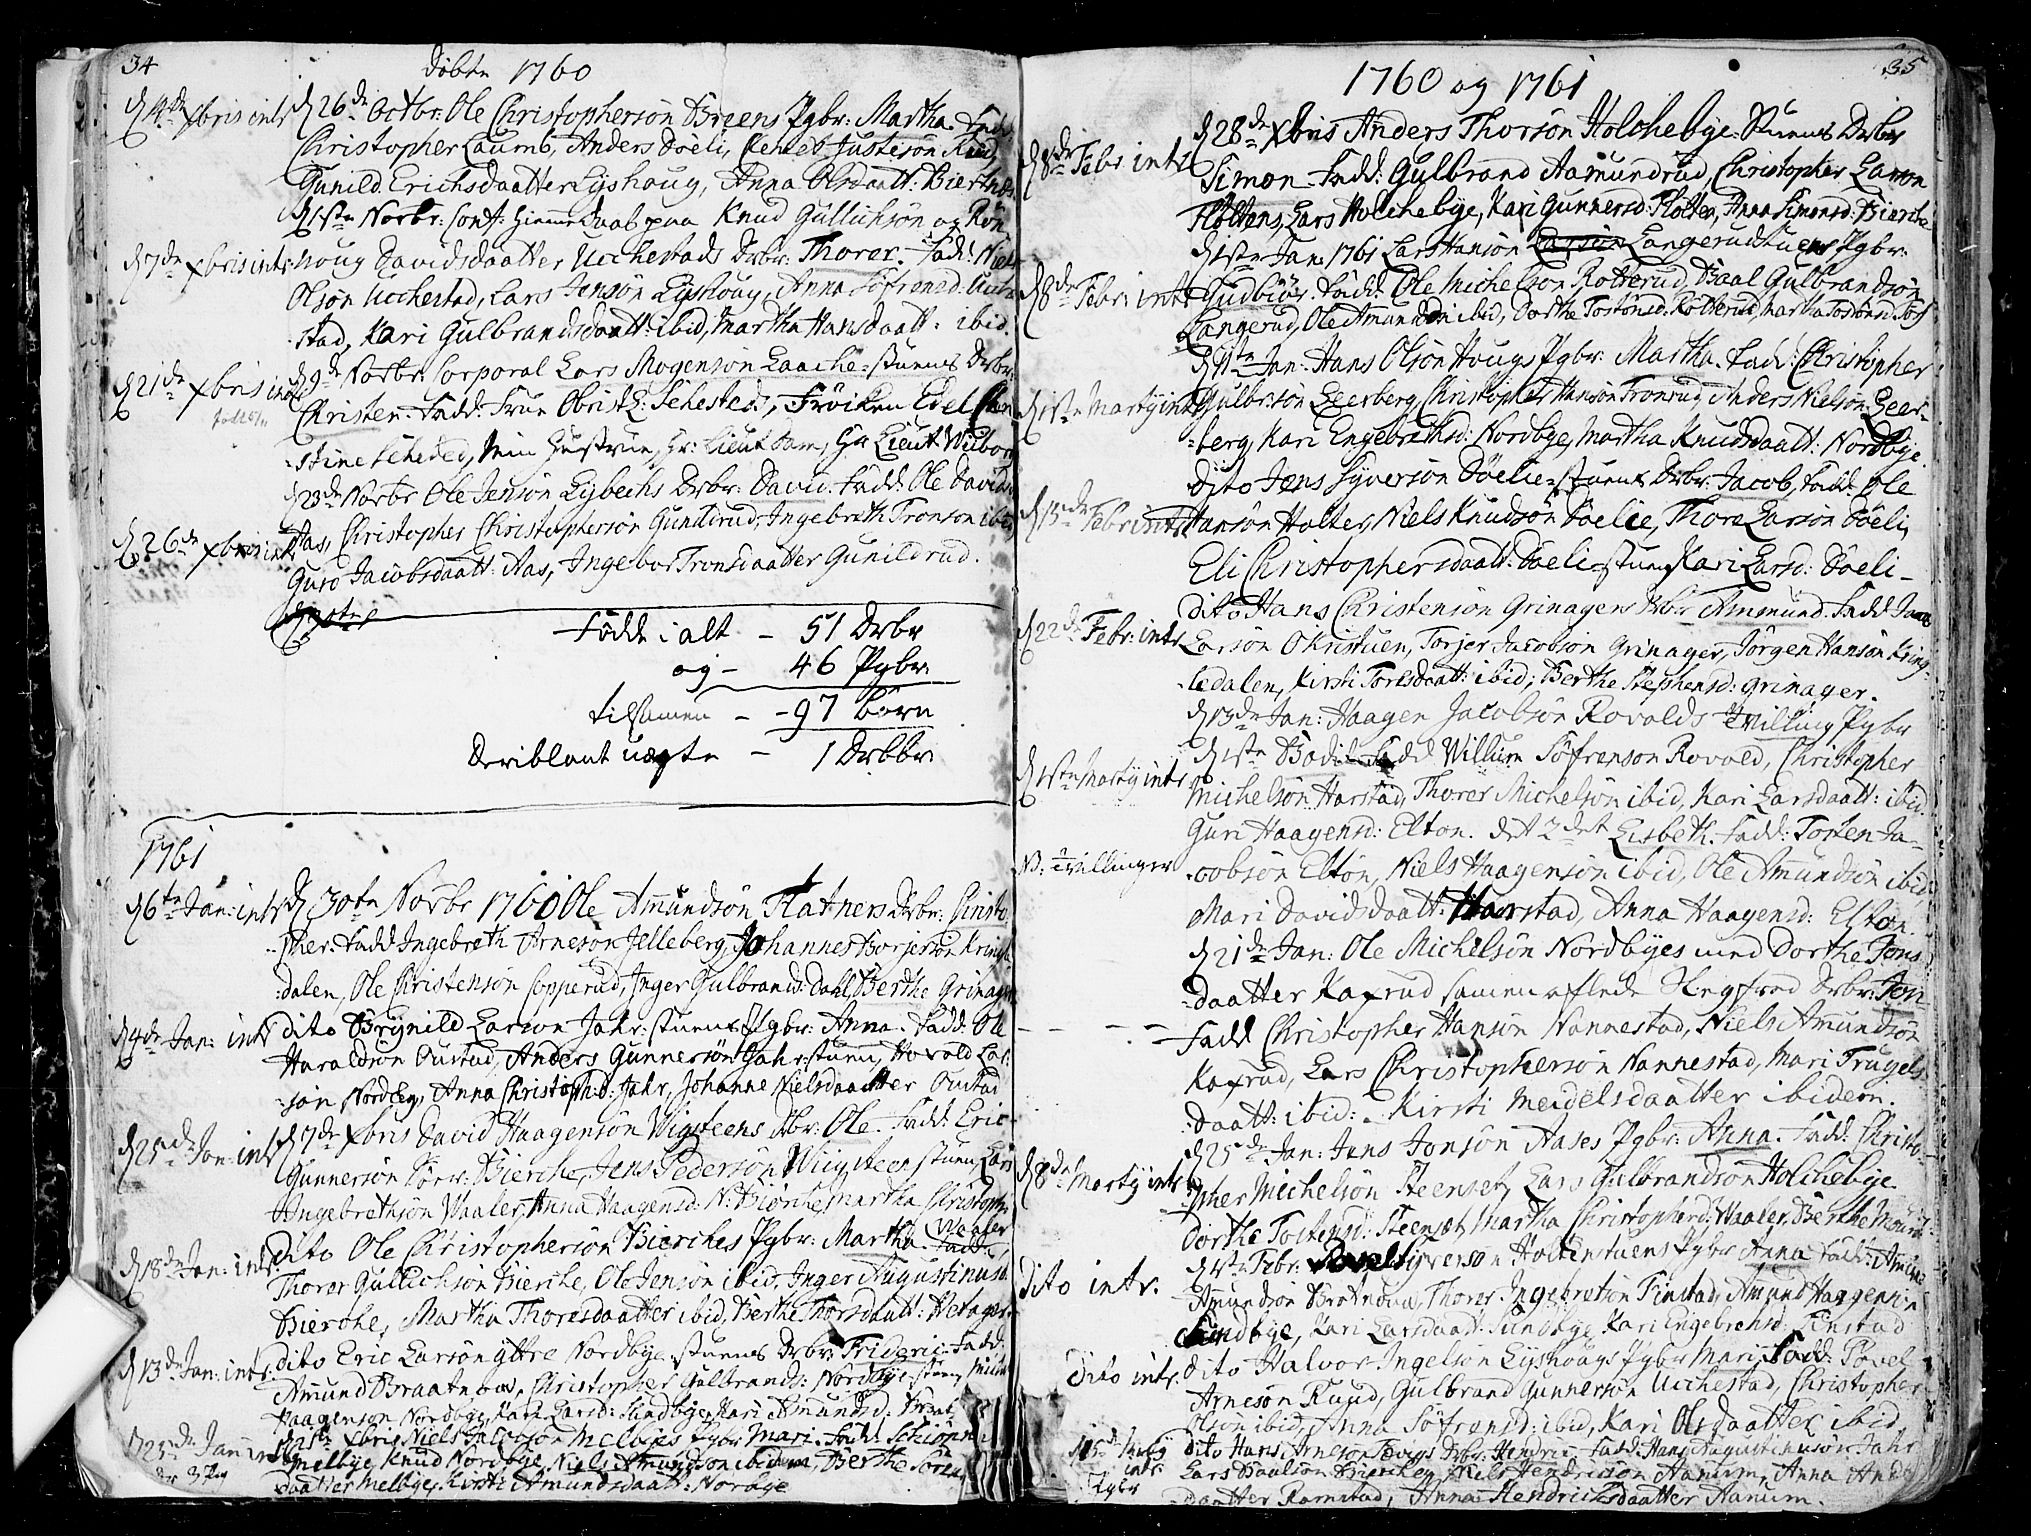 34
döbte 1760
d 14de Xbris intr d 26de Octbr: Ole Christophersön Breens Pgbr: Martha. Fadd:
Christopher Laumb, Anders Söeli, Clemet Justesön Ruud,
Gunild Erichsdaatter Lyshoug, Anna Olsdaatt: Bierchnes
d 1ste Novbr: conf: hiemmedaab paa Knud Gullichsön og Rön
d 7de Xbris intr: noug Davidsdaatter Ucchestads Drbr: Thorer. Fadd: Niels
Olsön Ucchestad, Lars Jensön Lyshoug, Anna Söfrensd: Ucche
stad, Kari Gulbrandsdaatt: ibid, Martha Hansdaatt: ibid.
d 21de Xbris intr d 9de Novbr: Corporal Lars Mogensön Laache-stuens Drbr:
Christen. Fadd: Frue Obristl: Sehested, Fröiken Edel Chri
stine Sehested, Min Hustrue, Hr: Lieut: Dam, Hr Lieut: Wiborg
d 23de Novbr Ole Jensön Lybechs Drbr: David. Fadd: Ole Davids:
d 26de Xbris intr Aas, Christopher Christophersön Gunildrud, Ingebreth Tronsön ibid,
Guro Jacobsdaatt: Aas, Ingebor Tronsdaatter Gunildrud.
Födde i alt - 51 Drbr
og - 46 Pgbr.
tilsamen - 97 börn
Deriblant uægte - 1 Drbbr.
1761
d 6te Jan: intr d 30te Novbr 1760 Ole Amundsön Flatners Drbr: Christo
pher. Fadd Ingebreth Arnesön Jelleberg, Johannes Borjersön Kringle
dalen, Ole Christensön Copperud, Inger Gulbrands: Dahl, Berthe Grinager
d 4de Jan: intr dito Brynild Larson Jahr-stuens Pgbr: Anna. Fadd: Ole
Haraldsön Oustad, Anders Gunnersön Jahr-stuen, Hovold Lar-
sön Nordby, Anna Christophd: Jahr, Johanne Nielsdaatter Oustad
d 25de Jan: intr d 7de Xbris David Haagensön Wigsteens Dbr: Ole. Fadd: Eric
Gunnersön Sörv: Bierche, Jens Pedersön Wiigsteenstuen, Lars
Ingebrethsön Waaler, Anna Haagensd: N: Biörche, Martha Christoph:
Waaler
d 18de Jan: intr: dito Ole Christophersön Bierches Pgbr: Martha. Fadd:
Thorer Gullichsön Bierche, Ole Jensön ibid, Inger Augustinusd:
Bierche, Martha Thoresdaatter ibid, Berthe Thorsdaatt: Hetager.
d 13de Jan: intr. dito Eric Larsön yttre Nordbye-stuens Drbr: Frideric. Fadd:
Amund Braatnow, Christopher Gulbrands: Nordbye-stuen,
Haagenson Nordbye, Kari Larsd: Sundbye, Kari Amundsd: Braat
d 25de Jan: intr d 21de Xbris Niels Jacobson Melbyes Pgbr Mari. Fadd:
Melbye, Knud Nordbye, Niels Amundson ibidem, Berthe Sören
daatter Melbye, Kirsti Amundsdaatt: Nordbye
35
1760 og 1761
d 28de Xbris Anders Thorsön Holchebye-Stuens Drbr
d 8de Febr intr Simon. Fadd: Gulbrand Aamundrud, Christopher Larson
Holtens, Lars Holchebye, Kari Gunnersd: Holten, Anna Simonsd: Bierche
d 1ste Jan: 1761 Lars Hansön Langerudstuens Pgbr:
d 8de Febr: intr Gudbiör. Fadd: Ole Michelsön Rotterud, Paal Gulbrandsön
Langerud, Ole Amundsön ibid, Dorthe Tostensd: Rotterud, Martha Tostensd
d 1ste Jan: Hans Olsön Hougs Pgbr: Martha. Fadd: Christopher
d 1ste Marty intr Gulbr:sön Leerberg, Christopher Hanson Tronrud, Anders Nielsön Leer-
berg, Kari Engebrethsd: Nordbye, Martha Knudsdaatt: Nordbye.
dito Jens Syversön Söelie-stuens Drbr: Jacob, Fadd Ole
d 15de Febr intr Hansön Holter, Niels Knudsön Söelie, Thore Larsön Söeli,
Eli Christophersdaatt: Söeli-stuen, Kari Larsd: Söeli-
dito Hans Christensön Grinagers Drbr Amund. Fadd
d 22de Febr: intr Larsön Okristuen, Torjer Jacobsön Grinager, Jörgen Hansön Kring-
ledalen, Kirsti Toresdaatt: ibid, Berthe Stephensd: Grinager.
d 13de Jan: Haagen Jacobsön Rovolds tvilling Pgbr
d 1ste Bodil Fadd Willum Söfrenson Rovold, Christopher
d 1ste Marty intr Michelsön Harstad, Thorer Michelsön ibid, Kari Larsdaatt: ibid,
Guri Haagensd: Elton. det 2det Lisbeth. Fadd: Tosten Ja-
N: Tvillinger cobsön Elton, Niels Haagensön ibid, Ole Amundsön ibid,
Mari Davidsdaatt: Harstad, Anna Haagensd: Elton.
d 21de Jan: Ole Michelsön Nordbyes med Dorthe Jons
daatter Kaxrud samen aflede Slegfred Drbr: Jon
Fadd Christopher Hansön Nannestad, Niels Amundsön
Kaxrud, Lars Christophersön Nannestad, Mari Trugels-
daatt: ibid: Kirsti Meidelsdaatter ibidem.
d 25de Jan: Jens Jonsön Aases Pgbr: Anna. Fadd: Christo-
d 8de Marty intr pher Michelsön Steenset, Lars Gulbrandsön Holchebye
Dorthe Tostensd: Steenset, Martha Christopherd: Waaler, Berthe
d 1ste Febr: Povel Syverson Holtenstuens Pgbr Anna Fadd:
dito intr. Amundsön Brotnow, Thorer Ingebretsön Finstad, Amund Haagensön
Sundbye, Kari Larsdaatt: Sundbye, Kari Engebrehsd: Finstad
Dito intr. dito Halvor Ingelsön Lyshougs Pgbr Mari, Fadd: Povel
Arnesön Ruud, Gulbrand Gunnersön Ucchestad, Christopher
Olsön ibid, Anna Söfrensd: ibid, Kari Olsdaatter ibid.
d 15d Marty intr. dito Hans Arneson Tovgs Drbr: Hendric. Fadd: Hans Augustinusön Jahr
Lars Paulsön Bierche, Niels Hendricsön Aanum, Anna
daatter Ramstad, Anna Hendrichsdaatter Aanum.